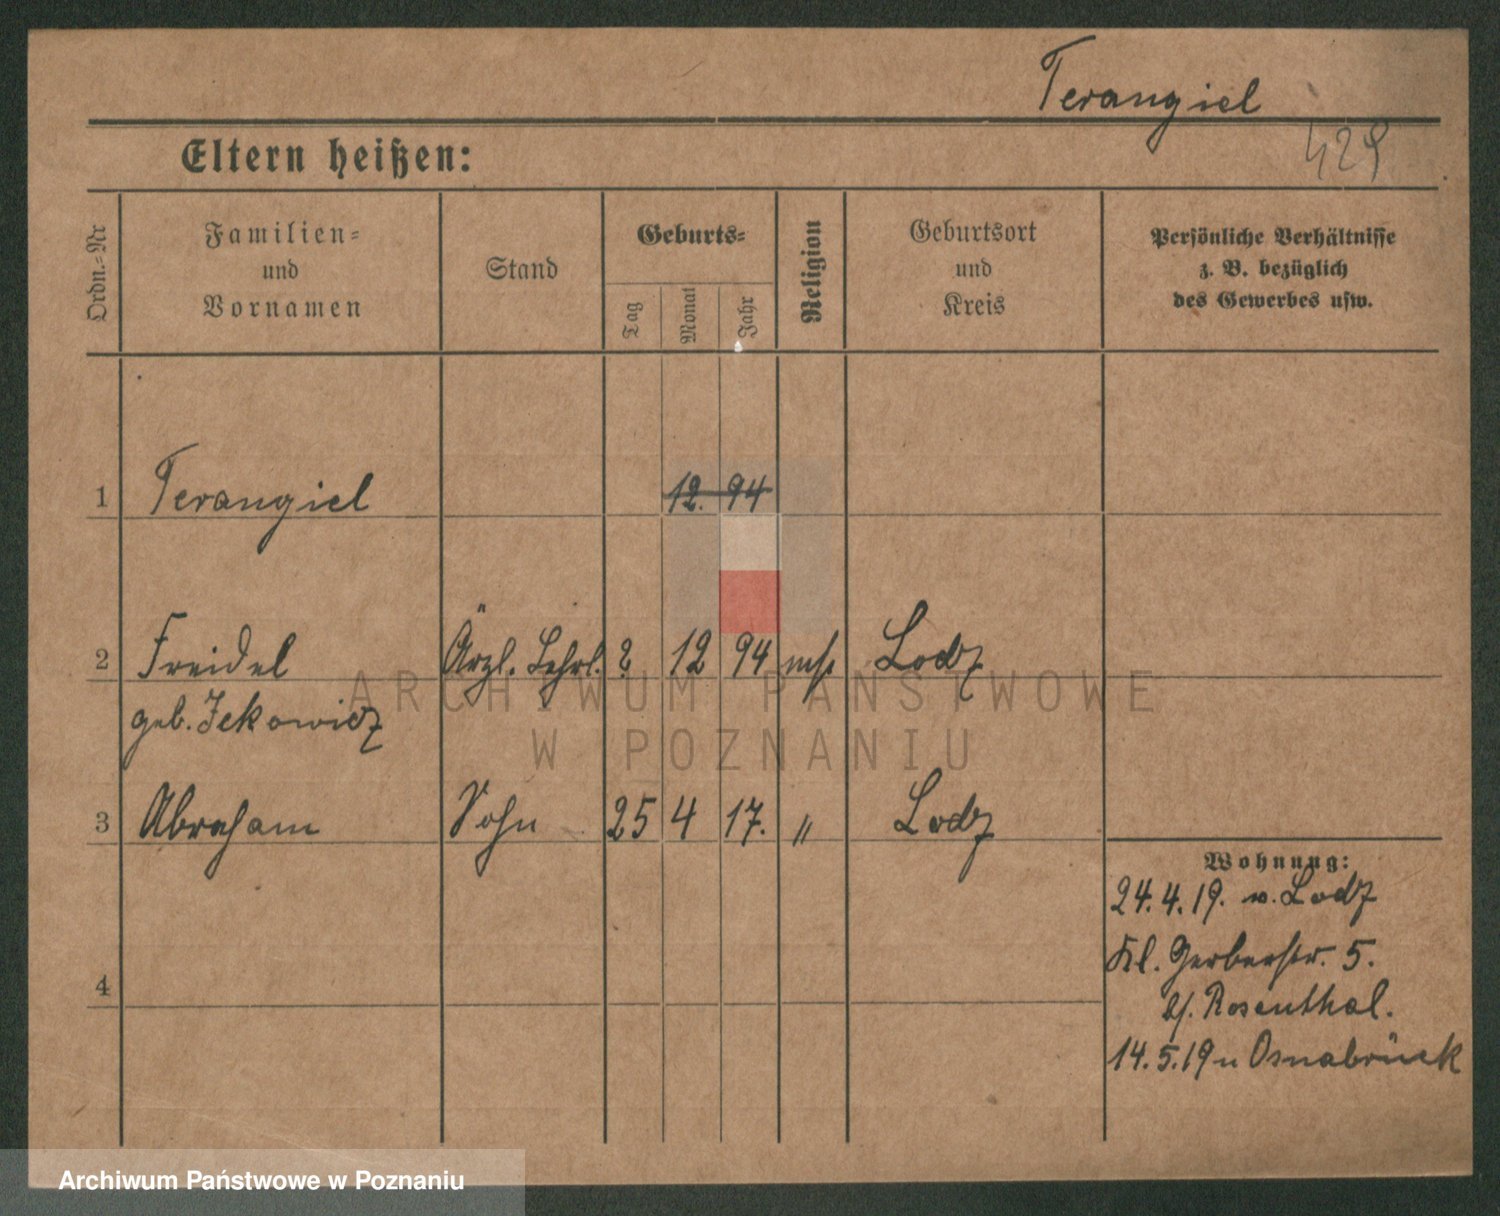 Terangiel
429
Eltern heißen:
Ordn.=Nr
Familien=
und
Vornamen
Stand
Geburts=
Tag
Monat
Jahr
Religion
Geburtsort
und
Kreis
Persönliche Verhältnisse
z. B. bezüglich
des Gewerbes usw.
1 Terangiel 12. 94
2 Freidel Lehrl. 2 12 94 mos. Lodz
geb. Jekowicz
3 Abraham Sohn 25 4 17. " Lodz
Wohnung:
24.4.19. v. Lodz
Kl. Gerberstr. 5.
b/. Rosenthal.
14.5.19 n Osnabrück
4
ARCHIWUM PAŃSTWOWE
W POZNANIU
Archiwum Państwowe w Poznaniu